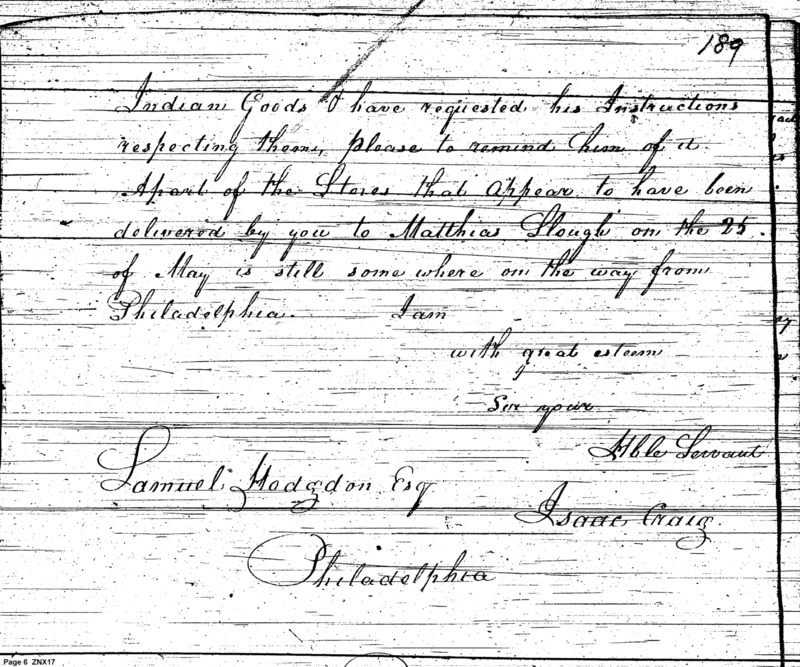 189
Indian Goods I have requested his Instructions
respecting them, please to remind him of it.
Apart of the Stores that appear to have been
delivered by you to Matthias Slough on the 25.
of May is still some where on the way from
Philadelphia. I am
with great esteem
Sir your
Hble Servant
Samuel Hodgdon Esq
Isaac Craig.
Philadelphia
Page 6 ZNX17